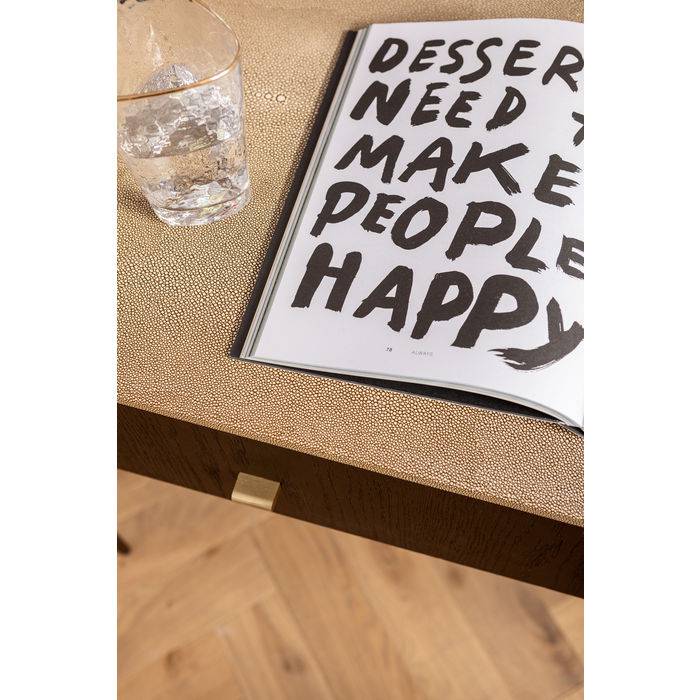 DESSER
NEED
MAKE
PEOPLE
HAPPY
78 ALWAYS